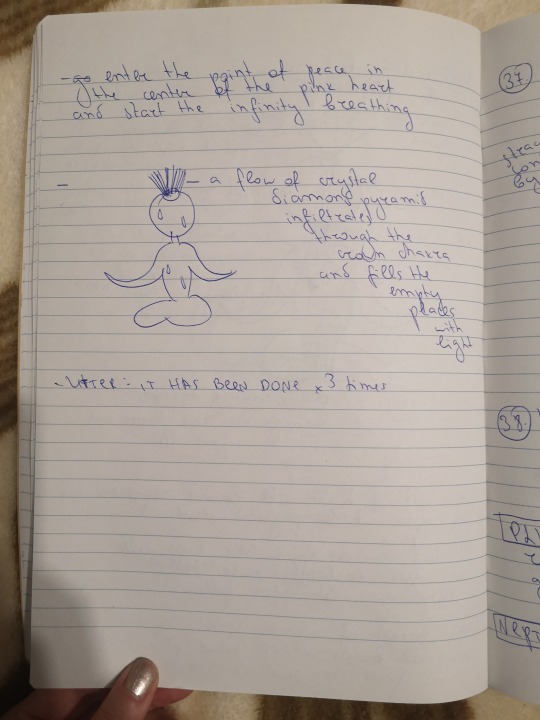 - go enter the point of peace in
the center of the pink heart
and start the infinity breathing
- a flow of crystal
diamond pyramid
infiltrates
through the
crown chakra
and fills the
empty
places
with
light
- UTTER: IT HAS BEEN DONE x 3 times
37.
38.